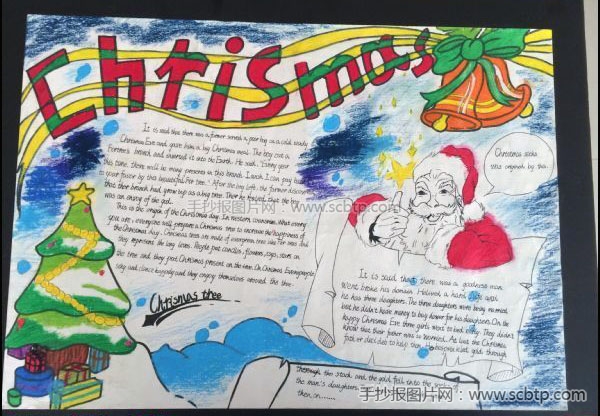 Christmas
It is said that there was a farmer served a poor boy on a cold windy
Christmas Eve and gave him a big Christmas meal. The boy cut a
branch and inserted it into the Earth. He said, "Every year
this time, there will be many presents on this branch. I wish I can pay back
to your favor by this beautiful Fir tree." After the boy left, the farmer discovered
that the branch had grown up as a big tree. Then he realized that the boy
was an envoy of the god.
This is the origin of the Christmas day. In western countries. What
you are, everyone will prepare a Christmas tree to increase the happyness of
the Christmas day. Christmas trees are made of evergreen trees like Fir and
they represent the long live. People put candles, flowers, toys, stars on
the tree and they put Christmas present on the tree. On Christmas Eve, people
sing and dance happily and they enjoying themselves around the tree.
Chrismas tree
Christmas socks
was original by this.
手抄报图片网 - www.scbtp.com
It is said that there was a goodness man
Went broke his domain. He lived a hard life with
he has three daughters. The three daughters were being married
and he didn't have money to buy dower for his daughters. On the
happy Christmas Eve three girls went to bed early. They didn't
know that their father was so worried. At last the Christmas
father decided to help them. gold through
Through the stack and the gold fell into the
the man's daughters.
then on......
手抄报图片网：www.scbtp.com